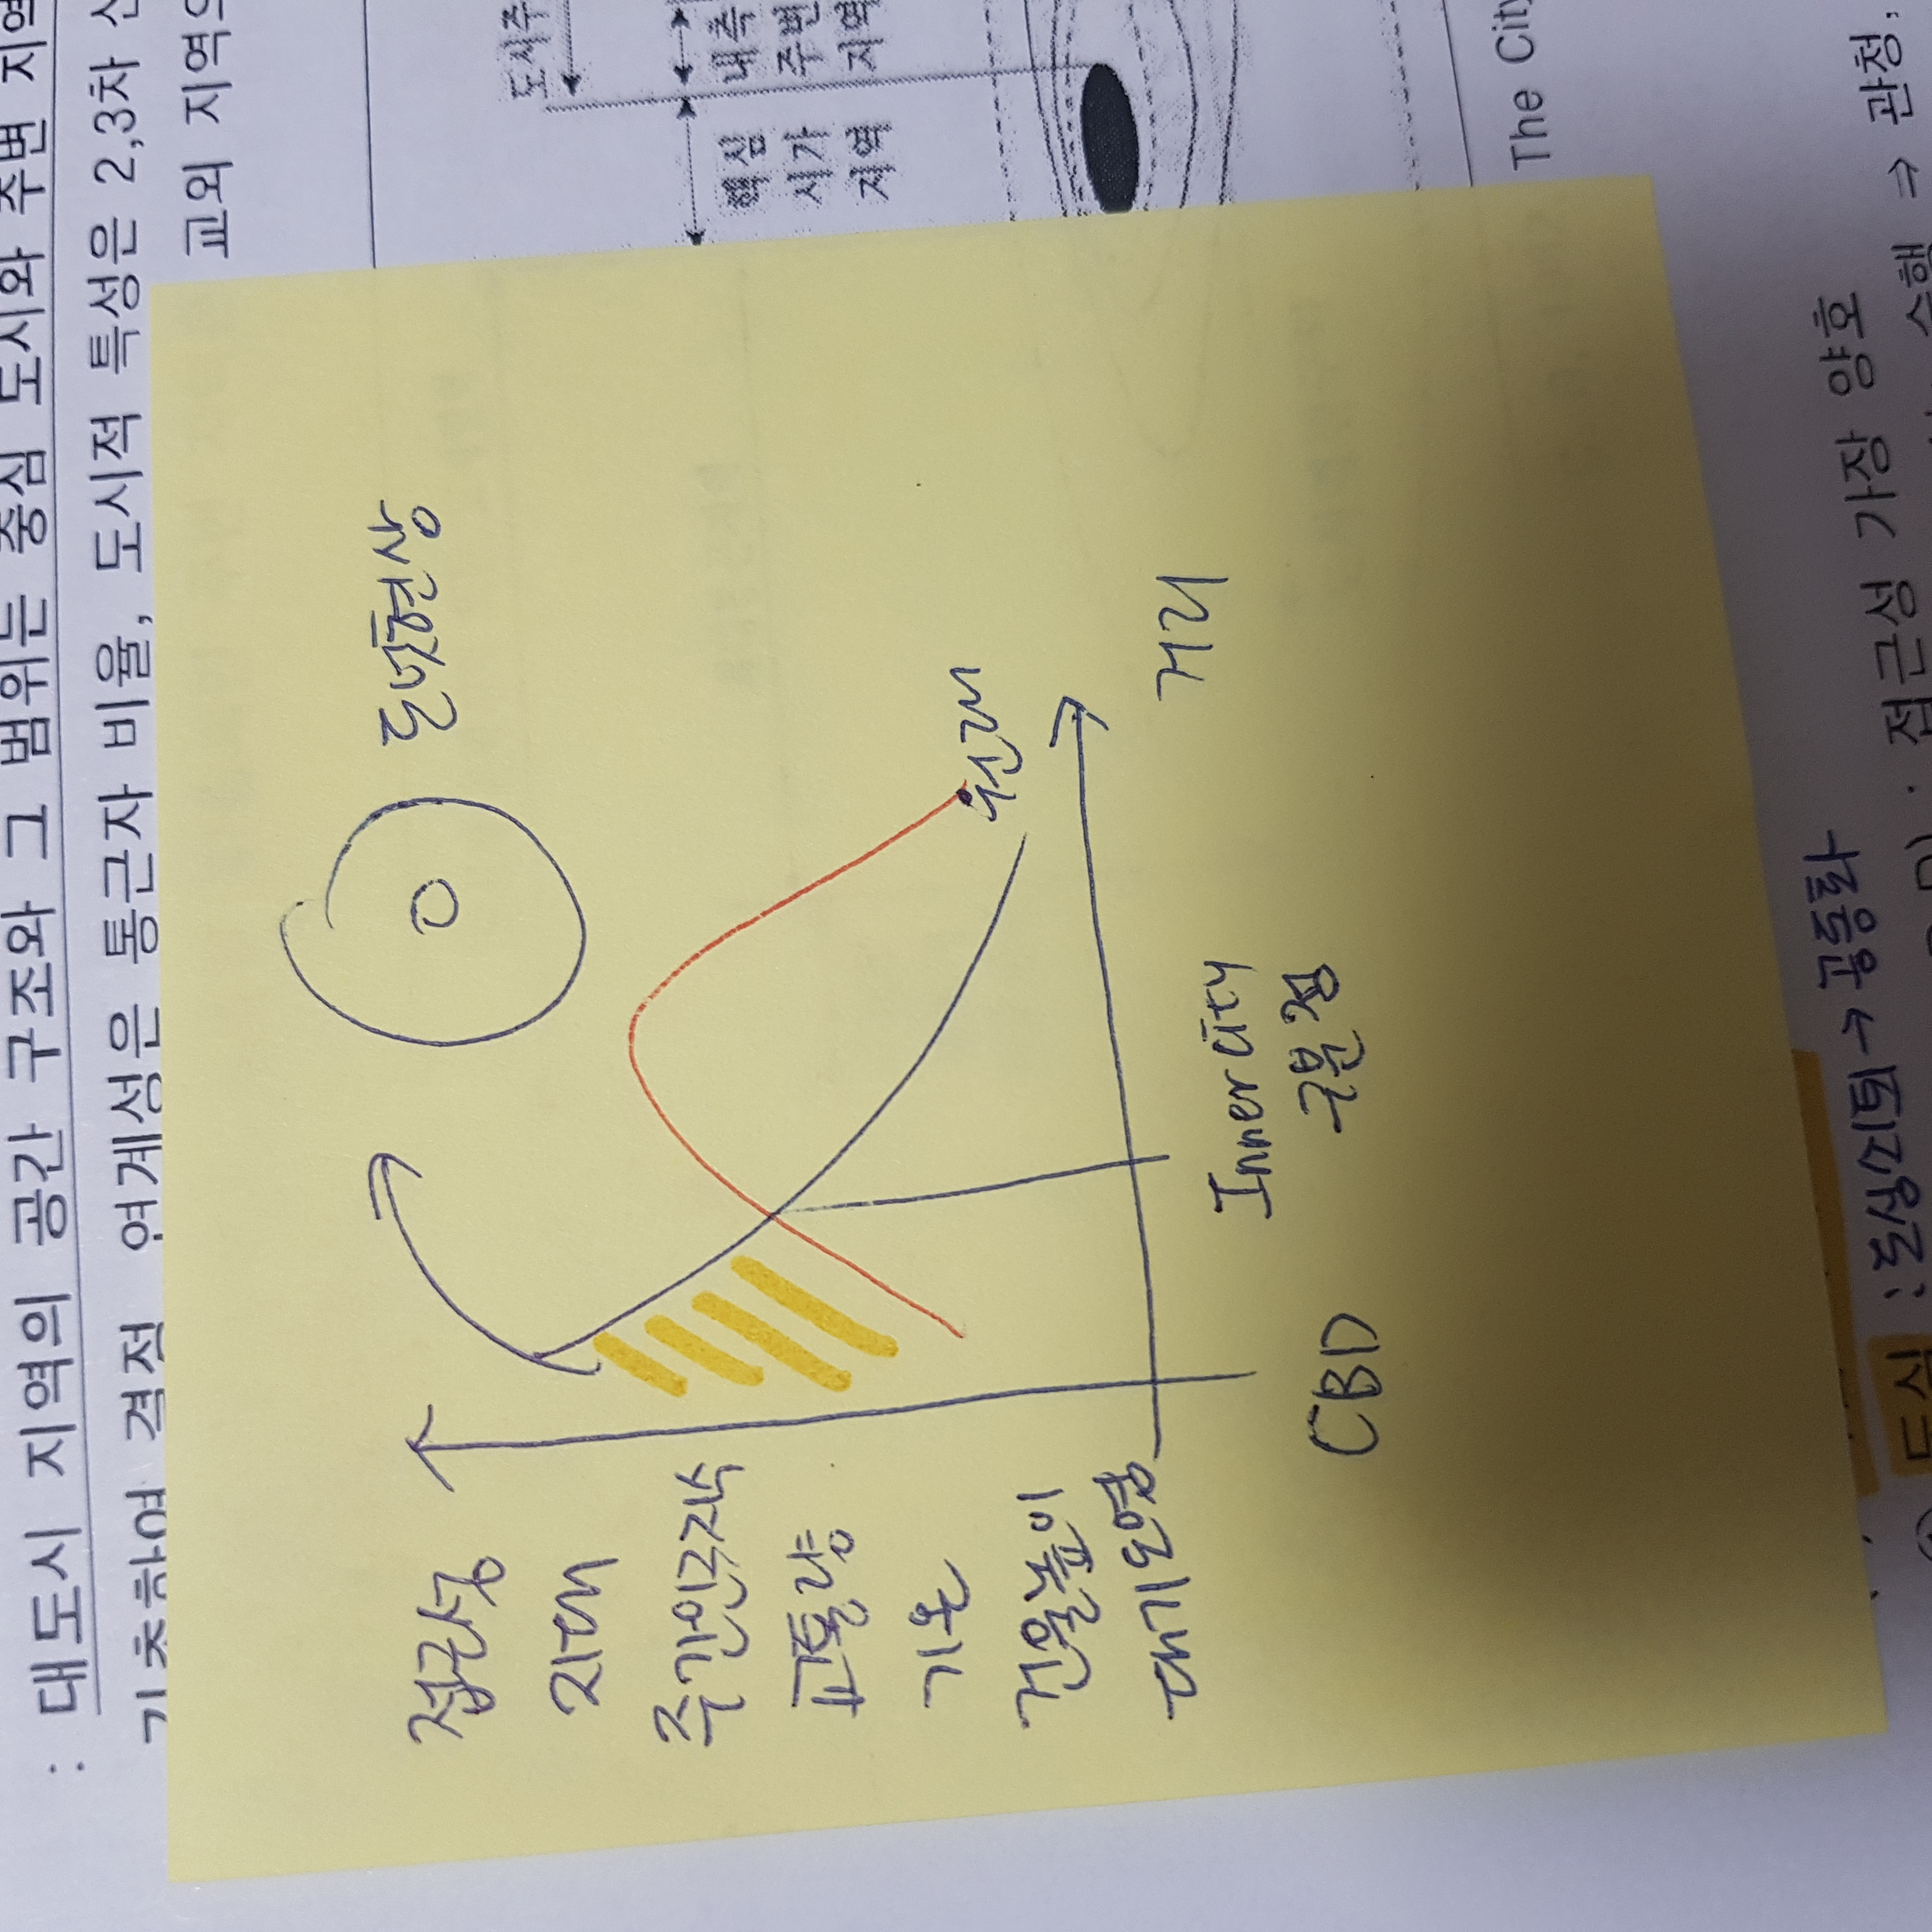 : 대도시 지역의 공간 구조와 그 범위는 중심 도시와 주변 지역
기초하여 결정 연계성은 통근자 비율, 도시적 특성은 2,3차 산
교외 지역의
도시주
내측
주변
지역
핵심
시가
지역
도넛현상
접근성
지대
주간인구지수
교통량
기온
건물높이
대기오염
거리
Inner city
CBD
The City
: 도심쇠퇴 → 공동화
도심
· 접근성 가장 양호
수행 ⇒ 관청,